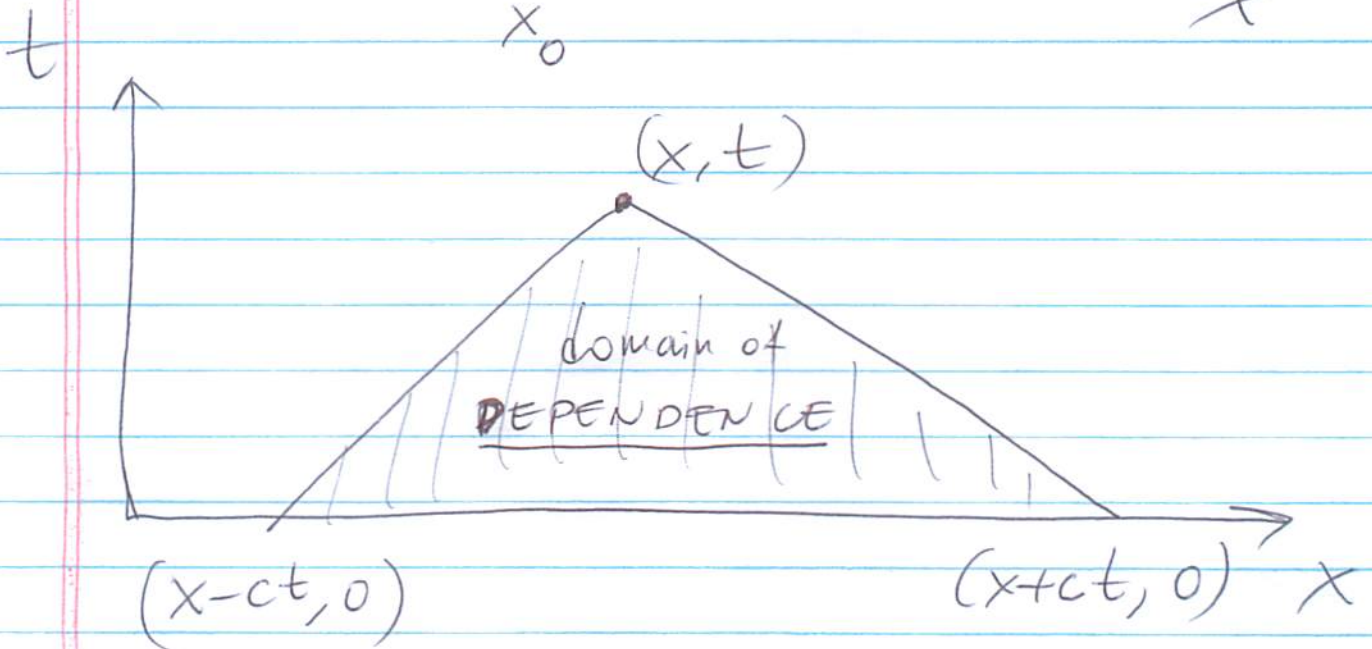 x₀ x
t
(x, t)
domain of
DEPENDENCE
(x-ct, 0) (x+ct, 0) x